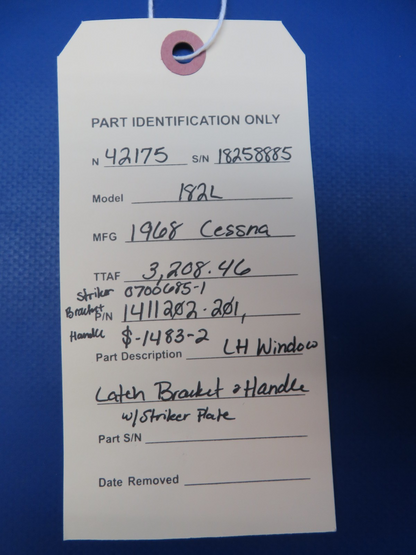 PART IDENTIFICATION ONLY
N 42175 S/N 18258885
Model 182L
MFG 1968 Cessna
TTAF 3,208.46
Striker 0706685-1
Bracket P/N 1411202-201,
Handle $-1483-2
Part Description LH Window
Latch Bracket & Handle
w/Striker Plate
Part S/N
Date Removed